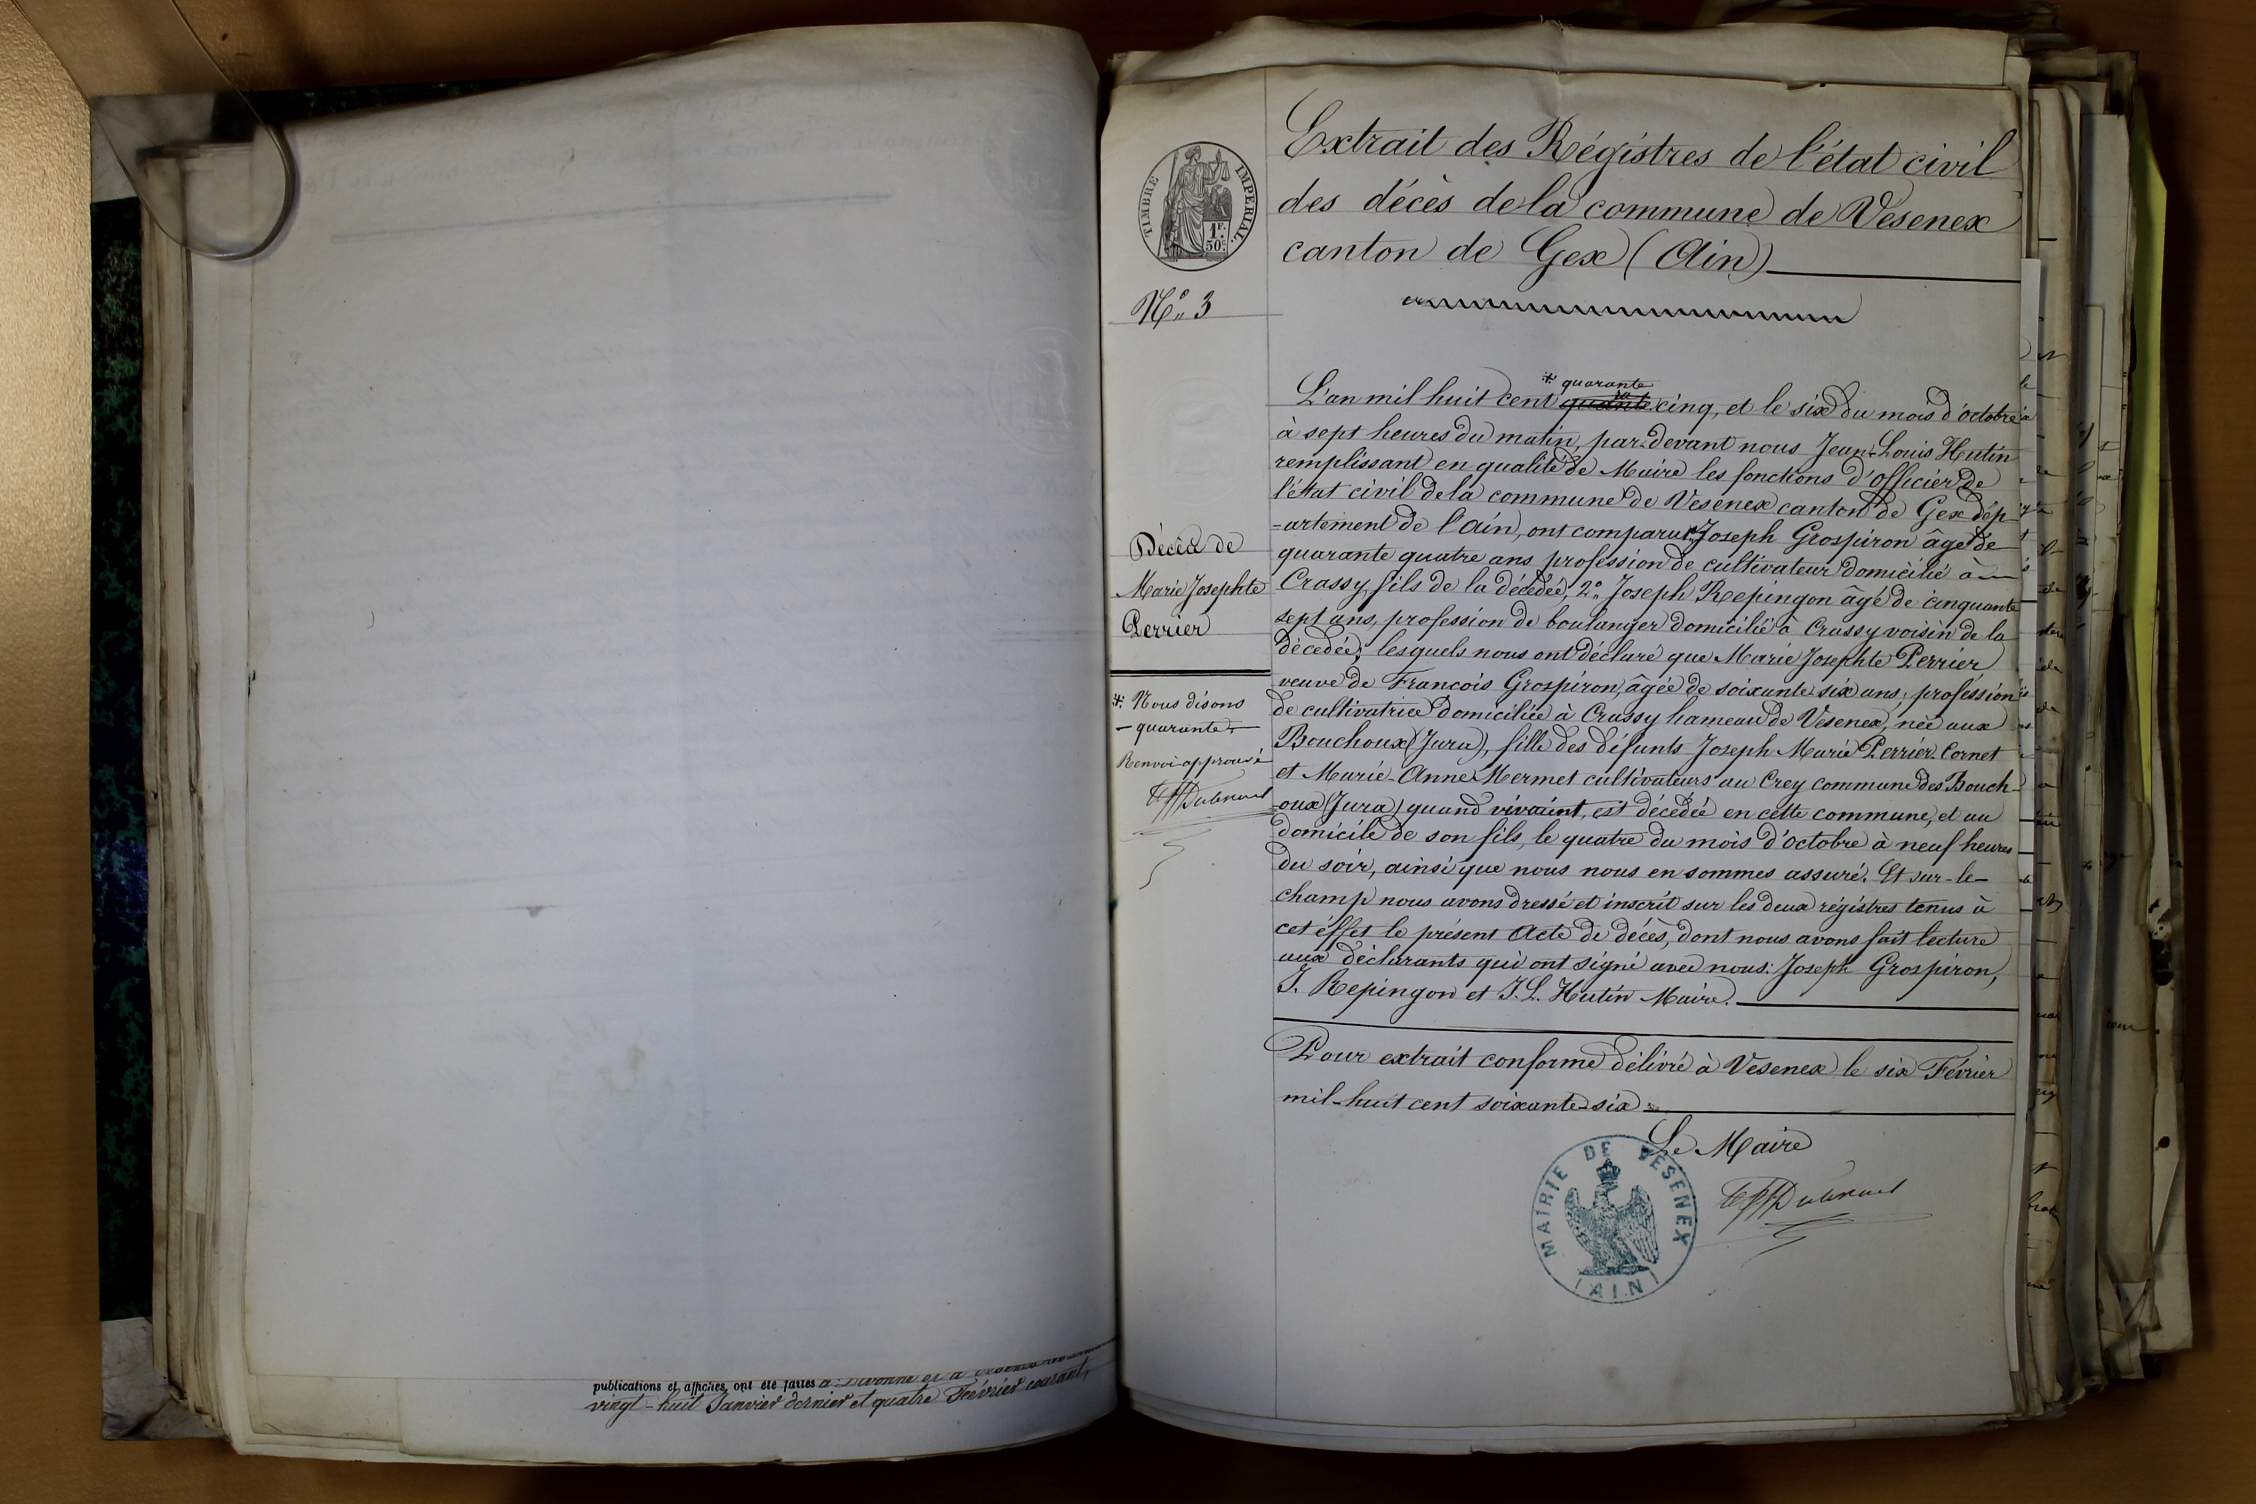 publications et affiches ont été faites à Divonne et à
vingt-huit Janvier dernier et quatre Février courant,
TIMBRE IMPERIAL
1F.
50c.
Nº 3
Extrait des Régistres de l'état civil
des décès de la commune de Vesenex
canton de Gex (Ain)
Décès de
Marie Josephte
Perrier
*. Nous disons
- quarante -
Renvoi approuvé
*. quarante
L'an mil huit cent cinq, et le six du mois d'octobre
à sept heures du matin, par-devant nous Jean-Louis Hutin
remplissant en qualité de Maire les fonctions d'officier de
l'état civil de la commune de Vesenex canton de Gex dép-
=artement de l'Ain, ont comparu 1º Joseph Grospiron âgé de
quarante quatre ans profession de cultivateur domicilié à
Crassy, fils de la décédée, 2º Joseph Repingon âgé de cinquante
sept ans, profession de boulanger domicilié à Crassy voisin de la
décédée; lesquels nous ont déclaré que Marie Josephte Perrier
veuve de Francois Grospiron, âgée de soixante-six ans, profession
de cultivatrice domiciliée à Crassy hameau de Vesenex, née aux
Bouchoux (Jura), fille des défunts Joseph-Marie Perrier-Cornet
et Marie-Anne Mermet cultivateurs au Crey commune des Bouch-
-oux (Jura) quand vivaient, est décédée en cette commune, et au
domicile de son fils, le quatre du mois d'octobre à neuf heures
du soir, ainsi que nous nous en sommes assuré. Et sur-le-
champ nous avons dressé et inscrit sur les deux régistres tenus à
cet éffet le présent Acte de décès, dont nous avons fait lecture
aux déclarants qui ont signé avec nous: Joseph Grospiron,
J. Repingon et J. L. Hutin Maire.
Pour extrait conforme délivré à Vesenex le six Février
mil-huit cent soixante-six
Le Maire
MAIRIE DE VESENEX
(AIN)